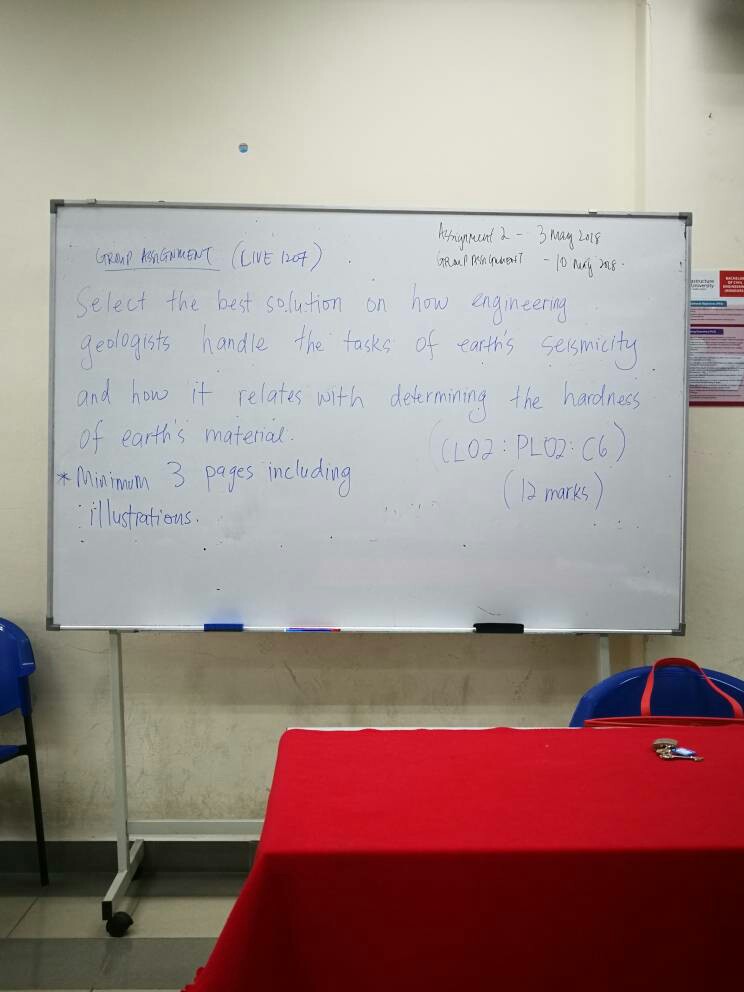 Assignment 2 - 3 May 2018
GROUP ASSIGNMENT - 10 May 2018.
GROUP ASSIGNMENT (LIVE 1207)
Select the best solution on how engineering
geologists handle the tasks of earth's seismicity
and how it relates with determining the hardness
of earth's material.
(CLO2: PLO2: C6)
* Minimum 3 pages including
(12 marks)
illustrations.
astructure
University
BACHELOR
OF CIVIL
ENGINEERING